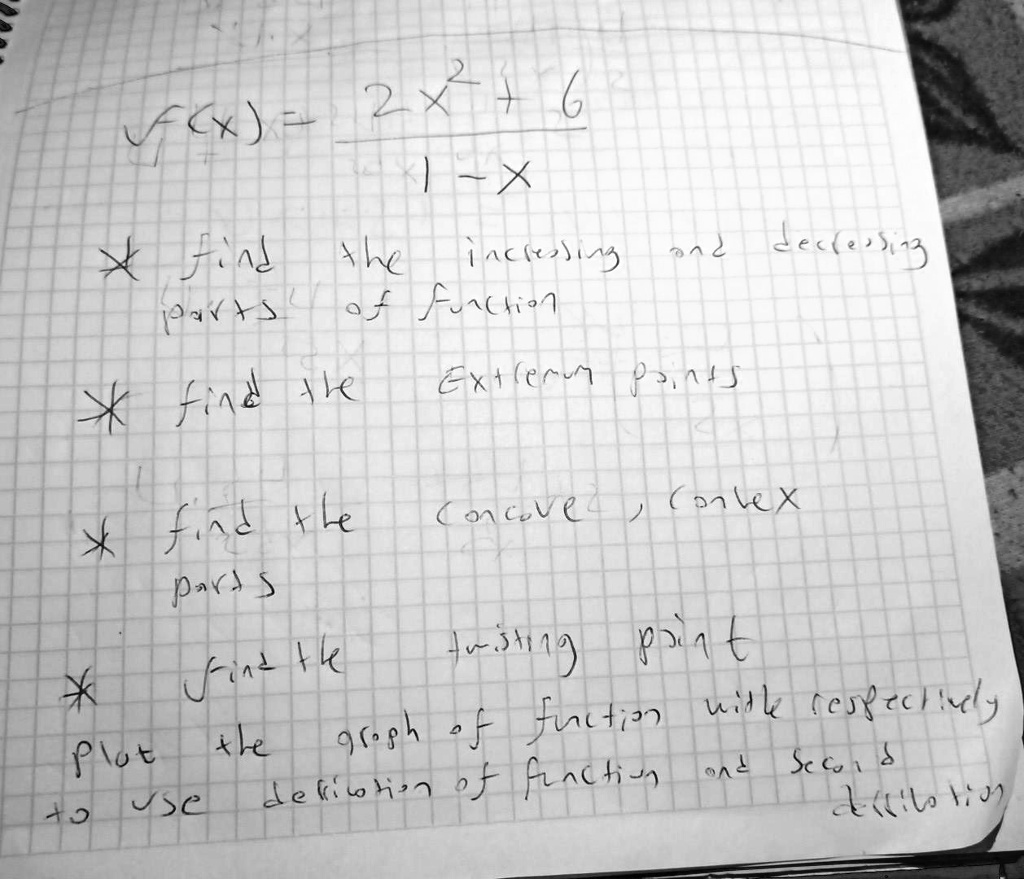 f(x) = 2x² + 6
1 - x
* find the incressing and decressing
parts of function
* find the Extremum points
* find the concave, convex
parts
* find the twisting point
plot the graph of function with respectively
to use derrivation of function and second
derrivation